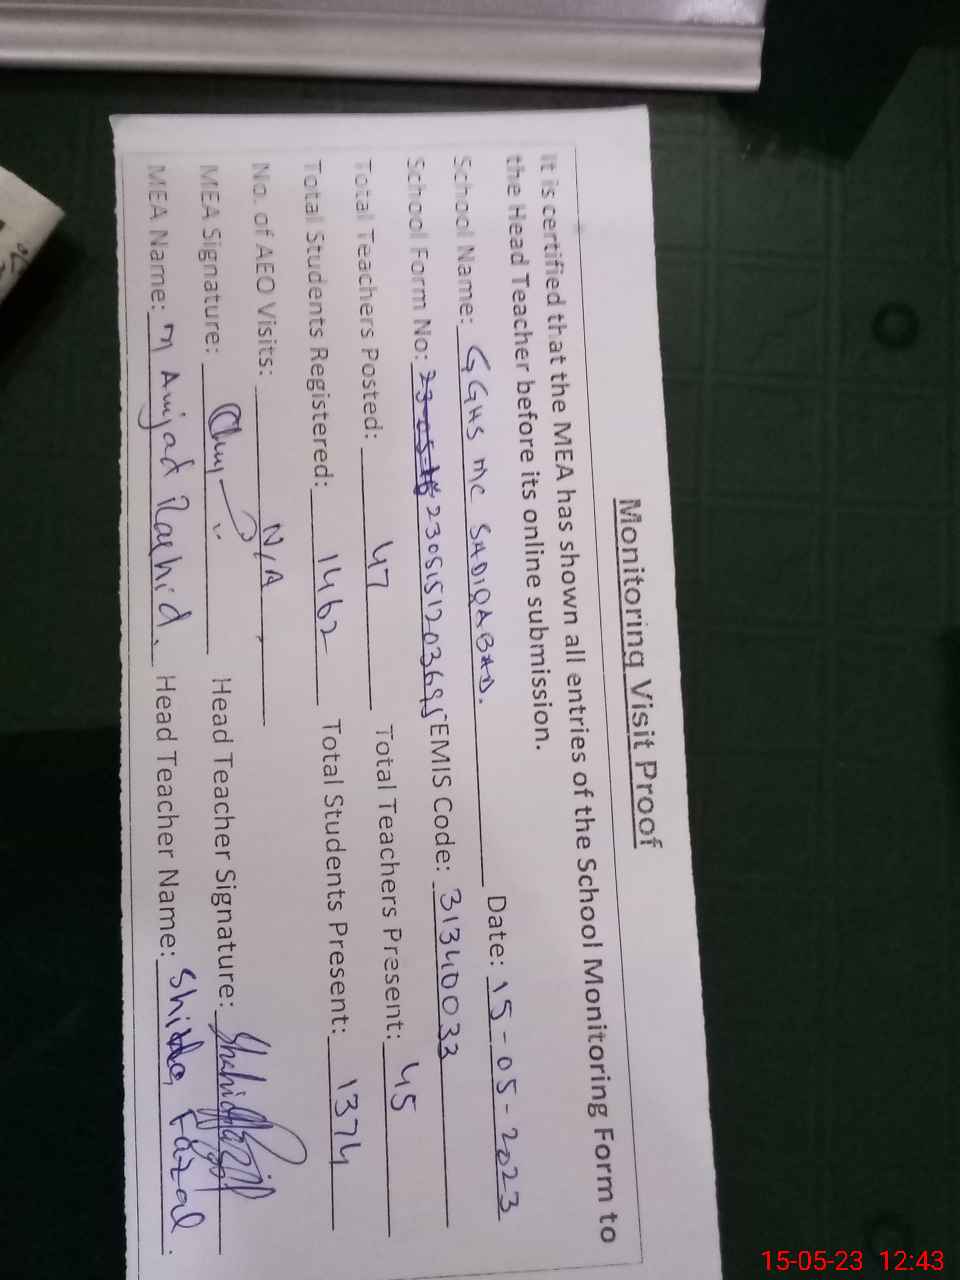 Monitoring Visit Proof
It is certified that the MEA has shown all entries of the School Monitoring Form to
the Head Teacher before its online submission.
School Name: GGHS MC SADIQABAD. Date: 15-05-2023
School Form No: 23-05-18 2305151203695 EMIS Code: 31340033
Total Teachers Posted: 47 Total Teachers Present: 45
Total Students Registered: 1462 Total Students Present: 1374
No. of AEO Visits: N/A
MEA Signature: Head Teacher Signature:
MEA Name: M Amjad Rashid. Head Teacher Name: Fazal.
15-05-23 12:43